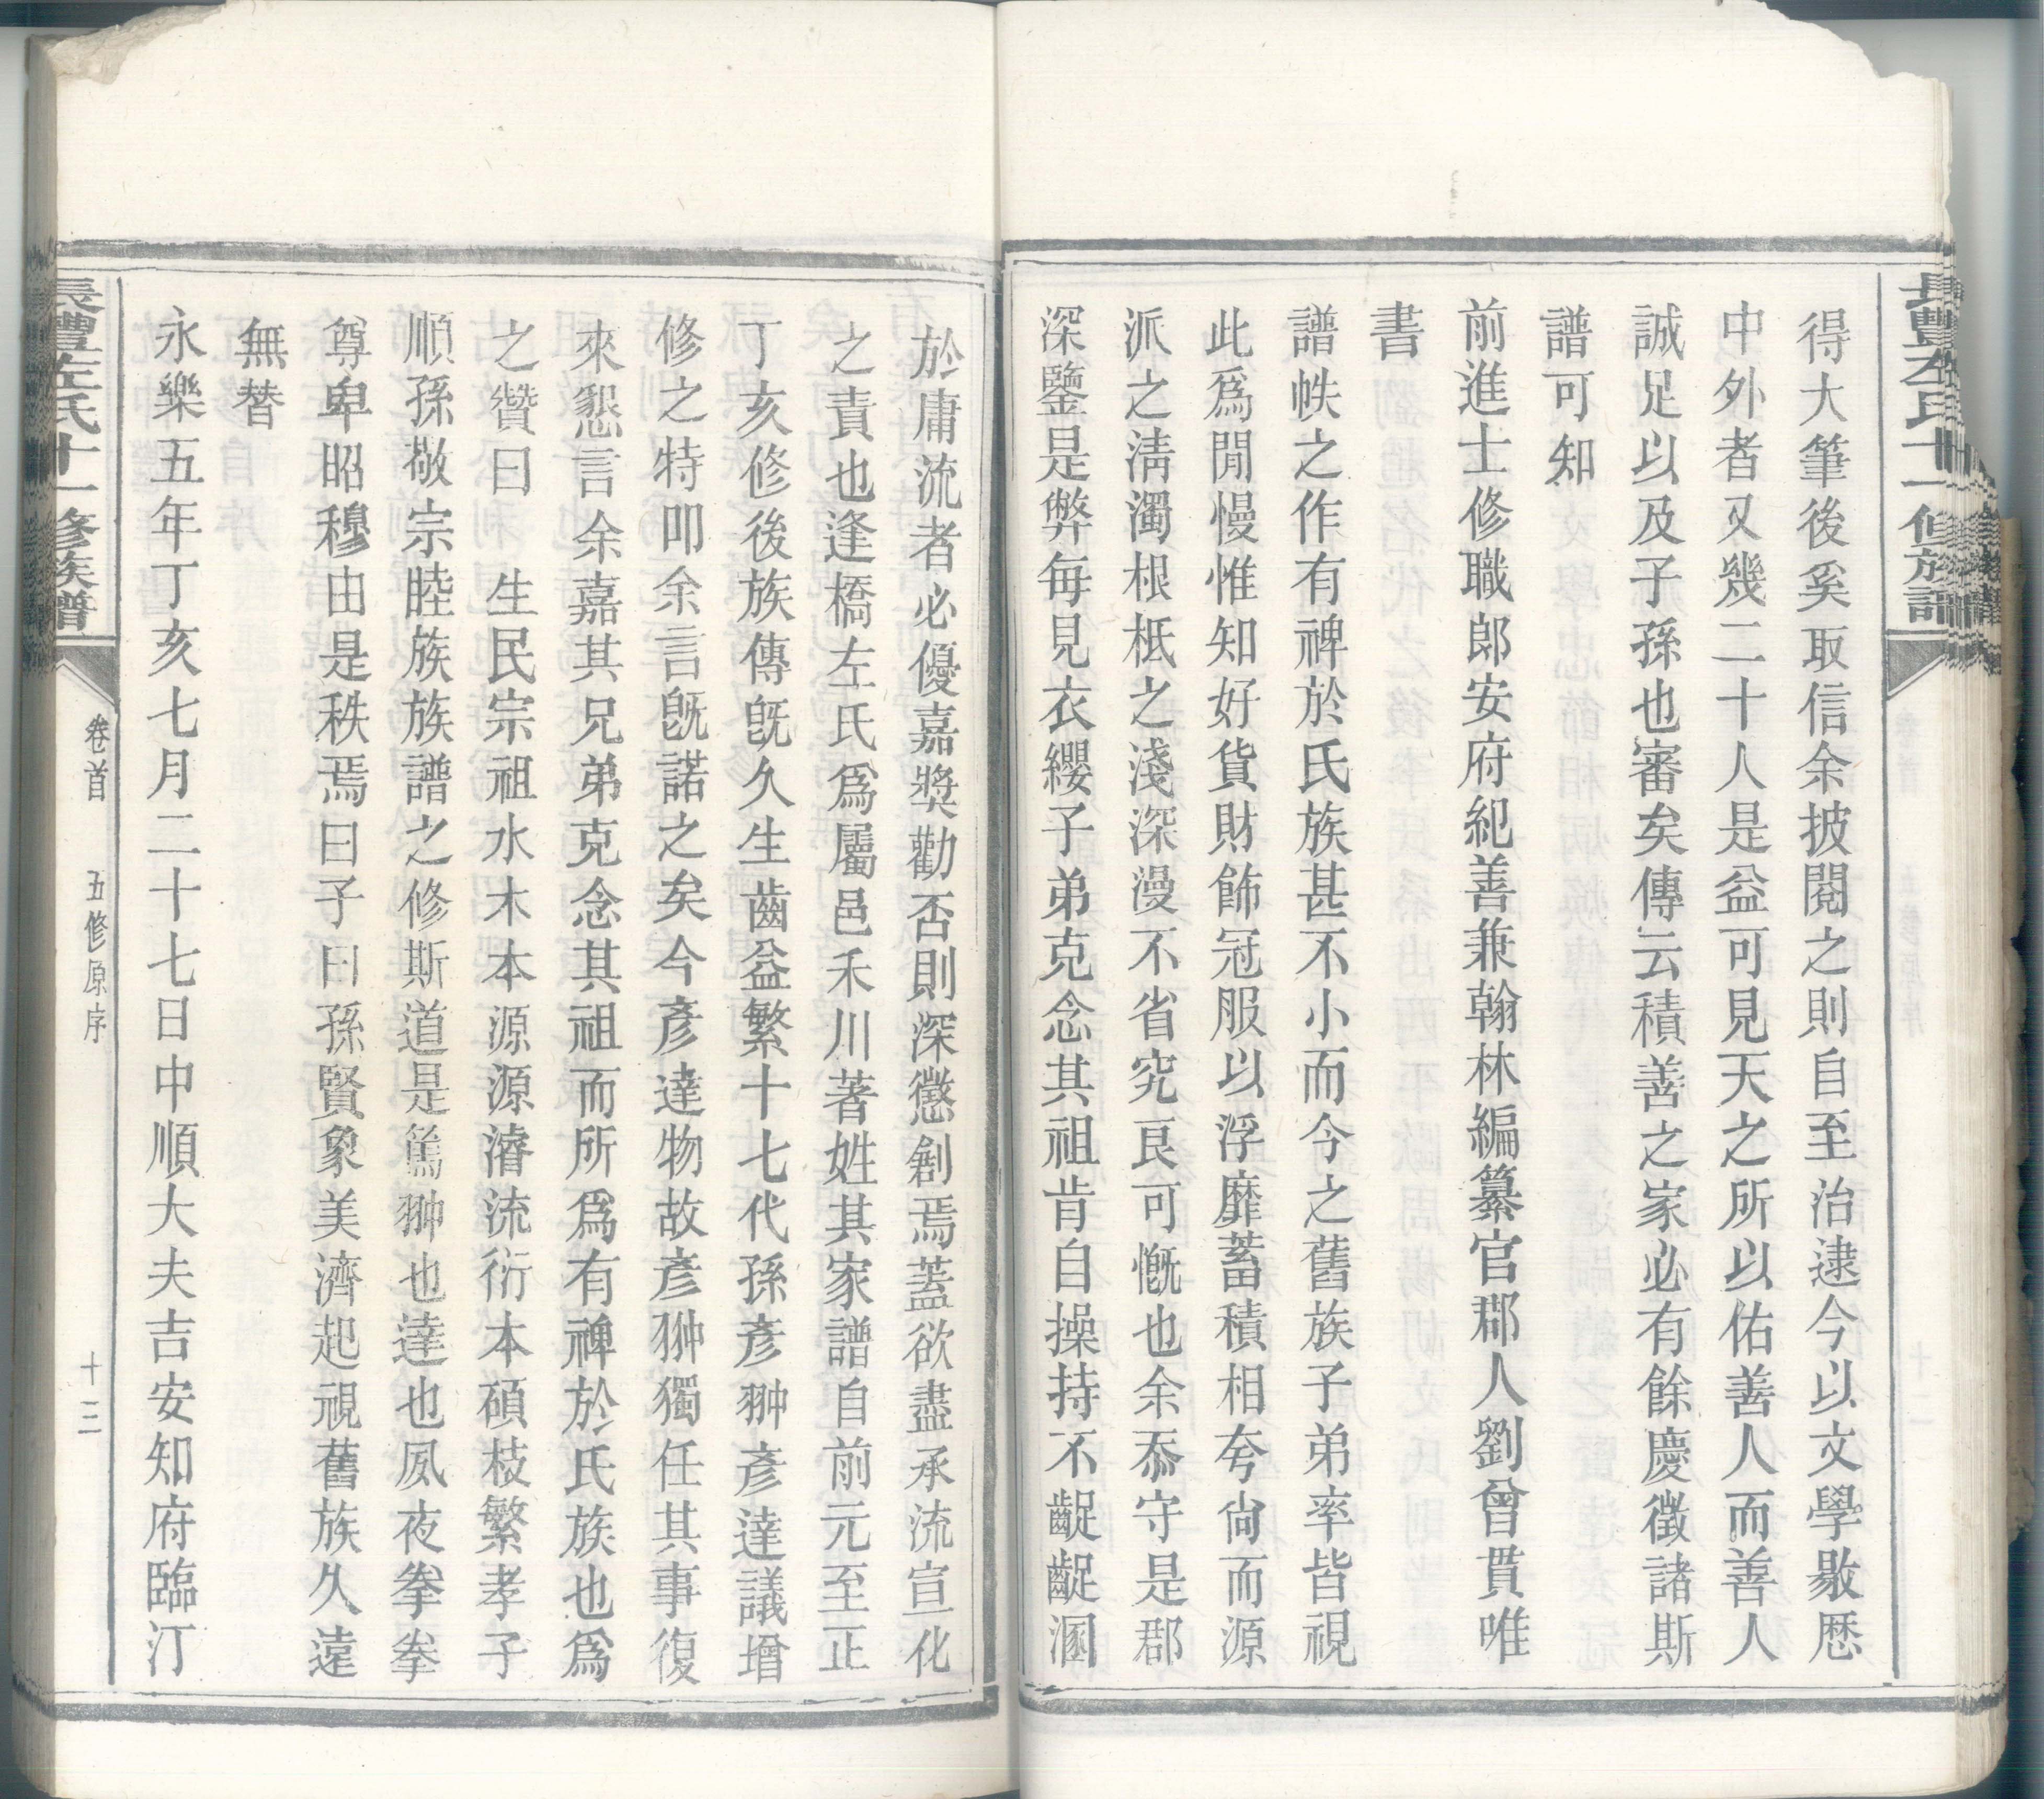 長豐左氏十一修族譜
得大筆後奚取信余披閱之則自至治逮今以文學敭歷
中外者又幾二十人是益可見天之所以佑善人而善人
誠足以及子孫也審矣傳云積善之家必有餘慶徵諸斯
譜可知
前進士修職郎安府紀善兼翰林編纂官郡人劉曾貫唯
書
譜帙之作有禆於氏族甚不小而今之舊族子弟率皆視
此爲閒慢惟知好貨財飾冠服以浮靡蓄積相夸尙而源
派之淸濁根柢之淺深漫不省究良可慨也余忝守是郡
深鑒是弊每見衣纓子弟克念其祖肯自操持不齪齪溷
於庸流者必優嘉奬勸否則深懲創焉蓋欲盡承流宣化
之責也逢橋左氏爲屬邑禾川著姓其家譜自前元至正
丁亥修後族傳旣久生齒益繁十七代孫彥翀彥達議增
修之特叩余言旣諾之矣今彥達物故彥翀獨任其事復
來懇言余嘉其兄弟克念其祖而所爲有禆於氏族也爲
之贊曰 生民宗祖水木本源源濬流衍本碩枝繁孝子
順孫敬宗睦族族譜之修斯道是篤翀也達也夙夜拳拳
尊卑昭穆由是秩焉曰子曰孫賢象美濟起視舊族久遠
無替
永樂五年丁亥七月二十七日中順大夫吉安知府臨汀
長豐左氏十一修族譜
卷首 五修原序 十三